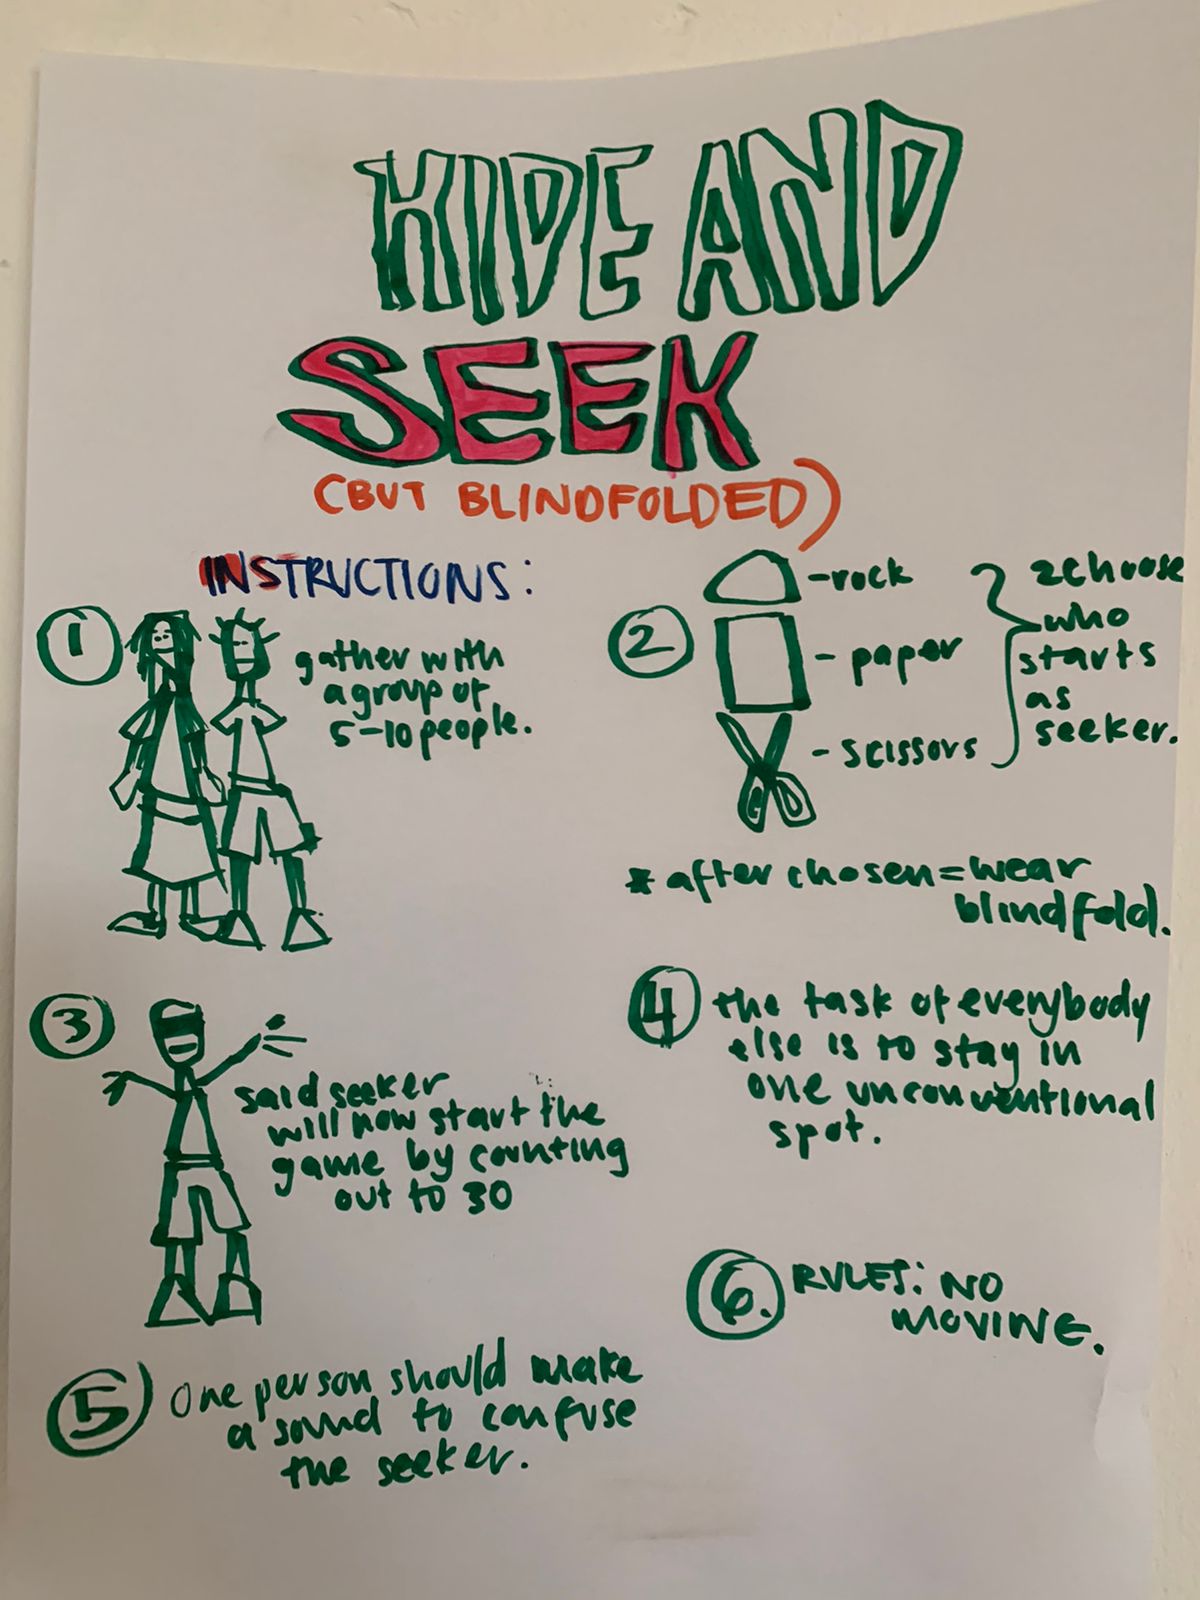 HIDE AND
SEEK
(BUT BLINDFOLDED)
INSTRUCTIONS:
1
gather with
a group of
5-10 people.
2
-rock
- paper
- scissors
2choose
who
starts
as
seeker.
* after chosen = wear
blindfold.
3
said seeker
will now start the
game by counting
out to 30
4
the task of everybody
else is to stay in
one unconventional
spot.
5
One person should make
a sound to confuse
the seeker.
6.
RULES: NO
MOVING.